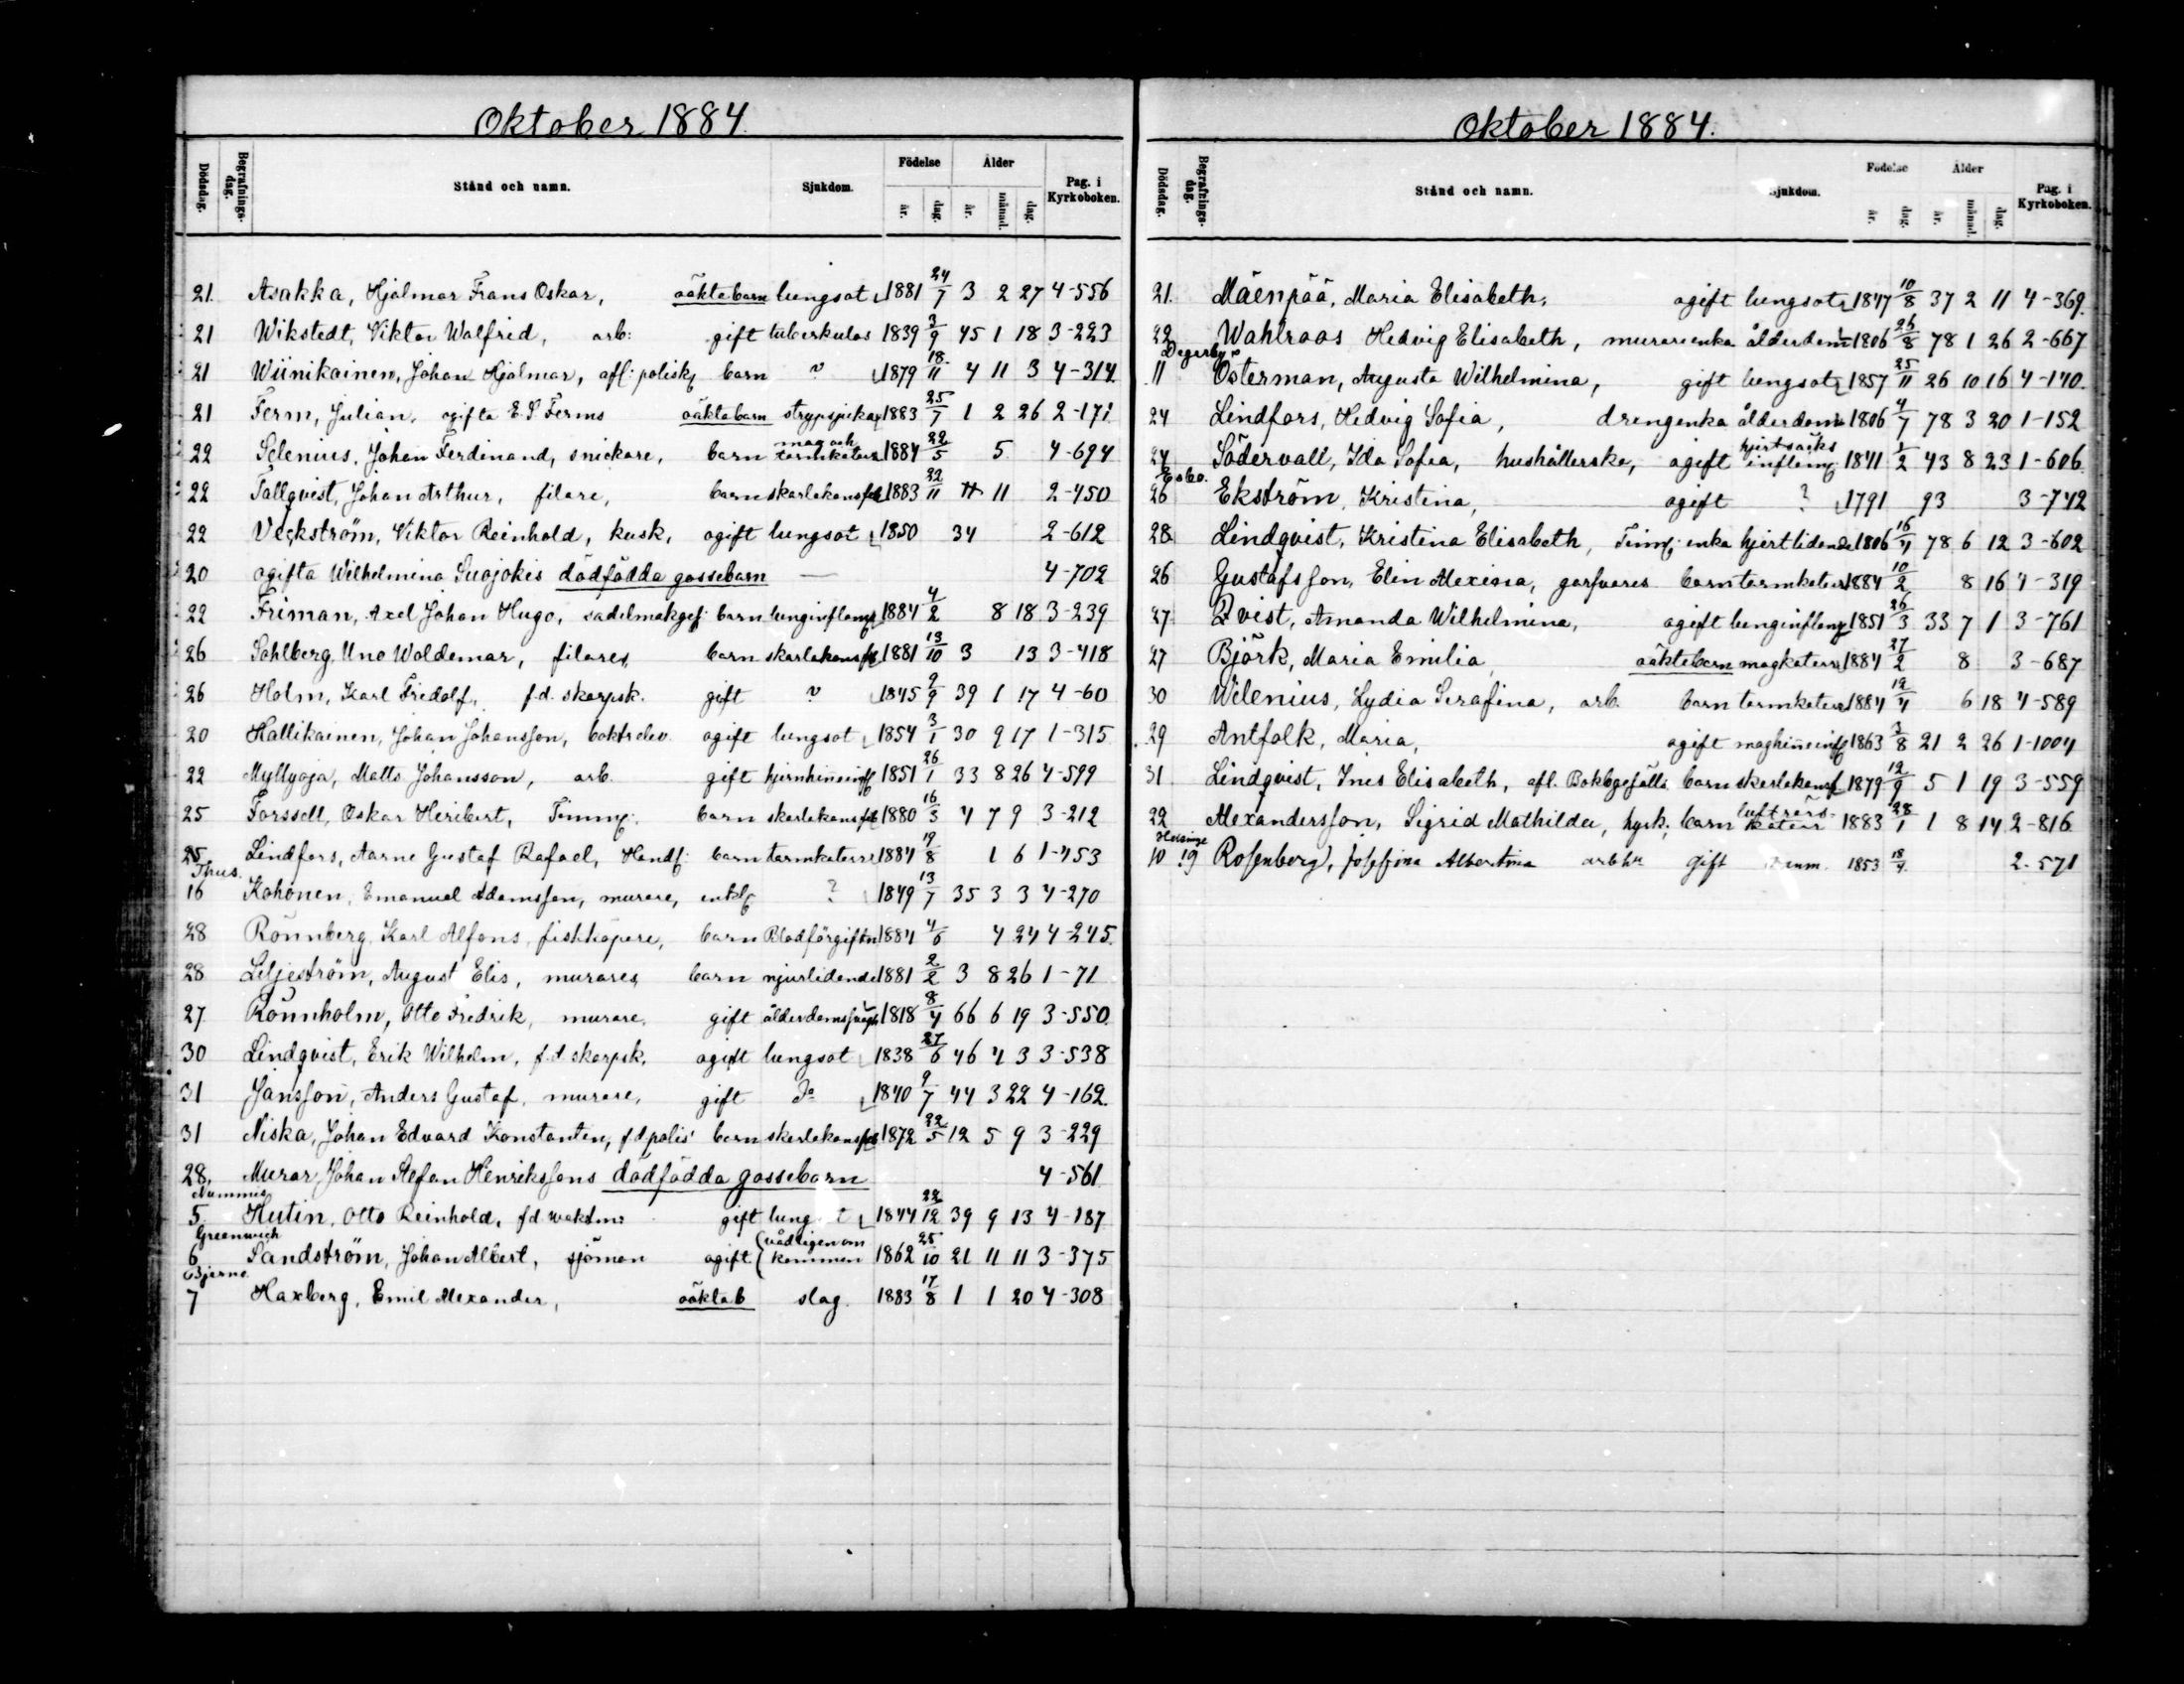 Oktober 1884.
Dödsdag. Begrafnings-dag. Stånd och namn. Sjukdom. Födelse år. dag. Ålder år. månad. dag. Pag. i Kyrkoboken.
21. Asakka, Hjalmar Frans Oskar, oäkta barn lungsot 1881 24/7 3 2 27 4-556
21 Wikstedt, Viktor Walfrid, arb: gift tuberkulos 1839 3/9 45 1 18 3-223
21 Wiinikainen, Johan Hjalmar, afl: polisk barn " 1879 18/11 4 11 3 4-314.
21 Ferm, Julian, ogifta E.S Ferms oäkta barn strypsjuka 1883 25/7 1 2 26 2-171
22 Selenius, Johan Ferdinand, snickare, barn mag och tarmkatarr 1884 22/5 5 4-694
22 Tallqvist, Johan Arthur, filare, barn skarlakansfeb 1883 22/11 11 2-450
22 Veckström, Viktor Reinhold, kusk, ogift lungsot 1850 34 2-612
20 ogifta Wilhelmina Suojokis dödfödda gossebarn — 4-702
22 Friman, Axel Johan Hugo, sadelmakgej: barn lunginflamg 1884 4/2 8 18 3-239
26 Sahlberg, Uno Woldemar, filares barn skarlakansfeb 1881 13/10 3 13 3-418
26 Holm, Karl Fridolf, f.d. skarpsk. gift " 1845 9/9 39 1 17 4-60
20 Hallikainen, Johan Johansson, boktr elev ogift lungsot 1854 3/1 30 9 17 1-315
22 Myllyoja, Matts Johansson, arb. gift hjernhinneinfl 1851 26/1 33 8 26 4-599
25 Forssell, Oskar Heribert, Timmg: barn skarlakansfeb 1880 16/3 4 7 9 3-212
25 Lindfors, Aarne Gustaf Rafael, Handl: barn tarmkatarr 1884 19/8 1 6 1-453
Thus.
16 Kohonen, Emanuel Adamsson, murare, enkl ? 1849 13/7 35 3 3 4-270
28 Rönnberg, Karl Alfons, fiskköpare, barn Blodförgiftn 1884 4/6 4 24 4-245.
28 Liljeström, August Elis, murares barn njurlidande 1881 2/2 3 8 26 1-71
27 Rönnholm, Otto Fredrik, murare. gift ålderdomsvagh 1818 8/4 66 6 19 3-550.
30 Lindqvist, Erik Wilhelm, f.d skarpsk. ogift lungsot 1838 27/6 46 4 3 3-538
31 Jansson, Anders Gustaf, murare, gift Do 1840 9/7 44 3 22 4-162.
31 Niska, Johan Edvard Konstantin, f d polis' barn skarlakansfeb 1872 22/5 12 5 9 3-229
28. Murar Johan Stefan Henrikssons dödfödda gossebarn 4-561
Nummis
5 Hutin, Otto Reinhold, f d waktm: gift lung t 1844 22/12 39 9 13 4-187
Greenwich
6 Sandström, Johan Albert, sjöman ogift (vådligen om kommen 1862 25/10 21 11 11 3-375
Bjerno
7 Haxberg, Emil Alexander, oäkta b slag. 1883 17/8 1 1 20 4-308
Oktober 1884.
Dödsdag. Begrafnings-dag. Stånd och namn. Sjukdom. Födelse år. dag. Ålder år. månad. dag. Pag. i Kyrkoboken.
21. Mäenpää, Maria Elisabeth, ogift lungsot 1847 10/8 37 2 11 4-369.
22 Wahlroos Hedvig Elisabeth, murareenka ålderdom 1806 26/8 78 1 26 2-667
Degerby
11 Österman, Augusta Wilhelmina, gift lungsot 1857 25/11 26 10 16 4-140.
24 Lindfors, Hedvig Sofia, drengenka ålderdom 1806 4/7 78 3 20 1-152
24 Södervall, Ida Sofia, hushållerska, ogift hjertsäcks inflamg 1841 1/2 43 8 23 1-606.
Esbo.
26 Ekström, Kristina, ogift ? 1791 93 3-742
28 Lindqvist, Kristina Elisabeth, Timmg: enka hjertlidande 1806 16/4 78 6 12 3-602
26 Gustafsson, Elin Alexina, garfvares barn tarmkatarr 1884 10/2 8 16 4-319
27 Qvist, Amanda Wilhelmina, ogift lunginflamg 1851 26/3 33 7 1 3-761
27 Björk, Maria Emilia, oäkta barn magkatarr 1884 27/2 8 3-687
30 Wilenius, Lydia Serafina, arb. barn tarmkatarr 1884 12/4 6 18 4-589
29 Antfolk, Maria, ogift maghinneinfl 1863 3/8 21 2 26 1-1004
31 Lindqvist, Ines Elisabeth, afl. Bokbgesälls barn skarlakansf 1879 12/9 5 1 19 3-559
22 Alexandersson, Sigrid Mathilda, hyrk: barn luftrörs-katarr 1883 28/1 1 8 14 2-816
Helsinge
10 19 Rosenberg, Josefina Albertina arb hu gift 1853 18/4. 2-571